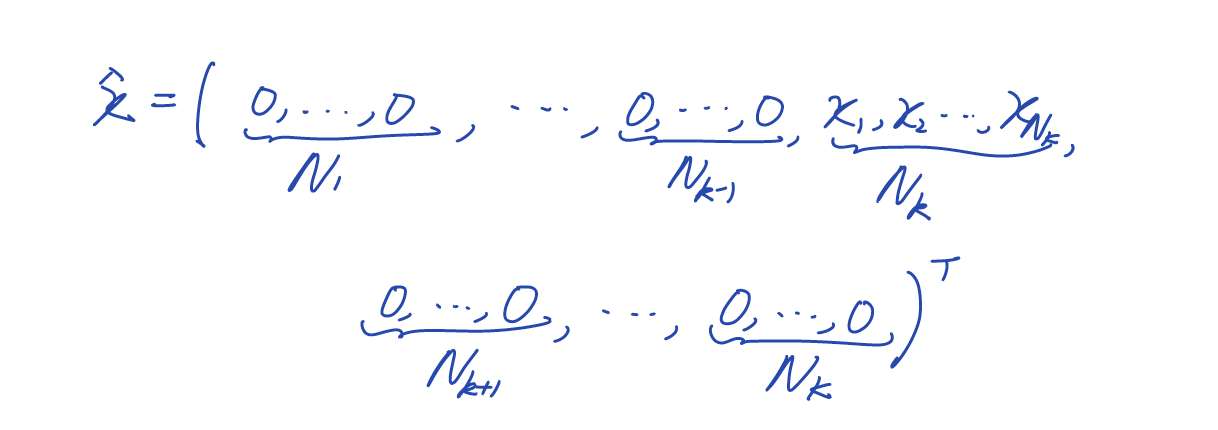 $\hat{x} = ( \underbrace{0, \cdots, 0}_{N_1}, \cdots, \underbrace{0, \cdots, 0}_{N_{k-1}}, \underbrace{x_1, x_2 \cdots, x_{N_k}}_{N_k},$
$\underbrace{0, \cdots, 0}_{N_{k+1}}, \cdots, \underbrace{0, \cdots, 0}_{N_k} )^T$